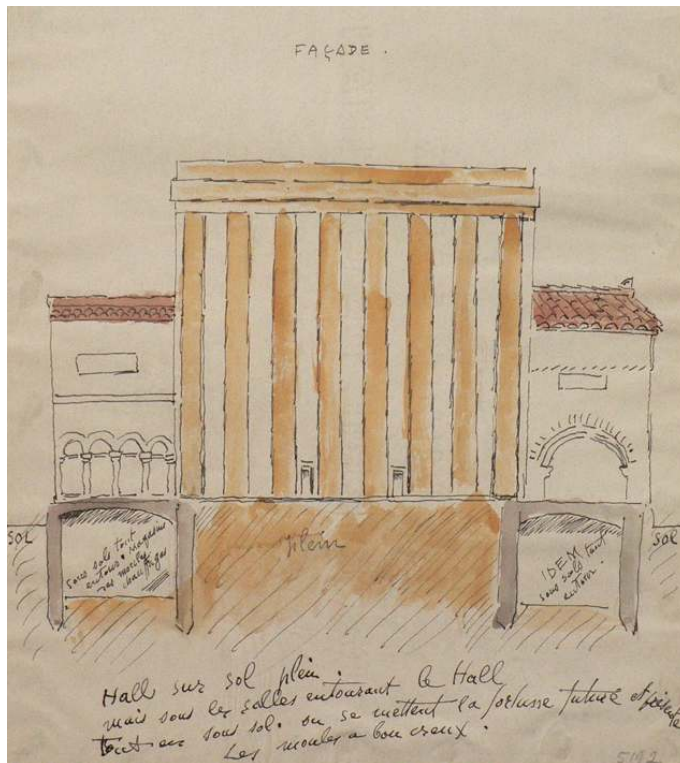 FAÇADE.
SOL
sous sols tout
entour. Magasins
chauffage
plein
IDEM
sous sols tout
entour.
SOL
Hall sur sol plein.
mais sous les salles entourant le Hall
tout en sous sol. ou se mettent la fortune future et
Les moules a bon creux.
5192